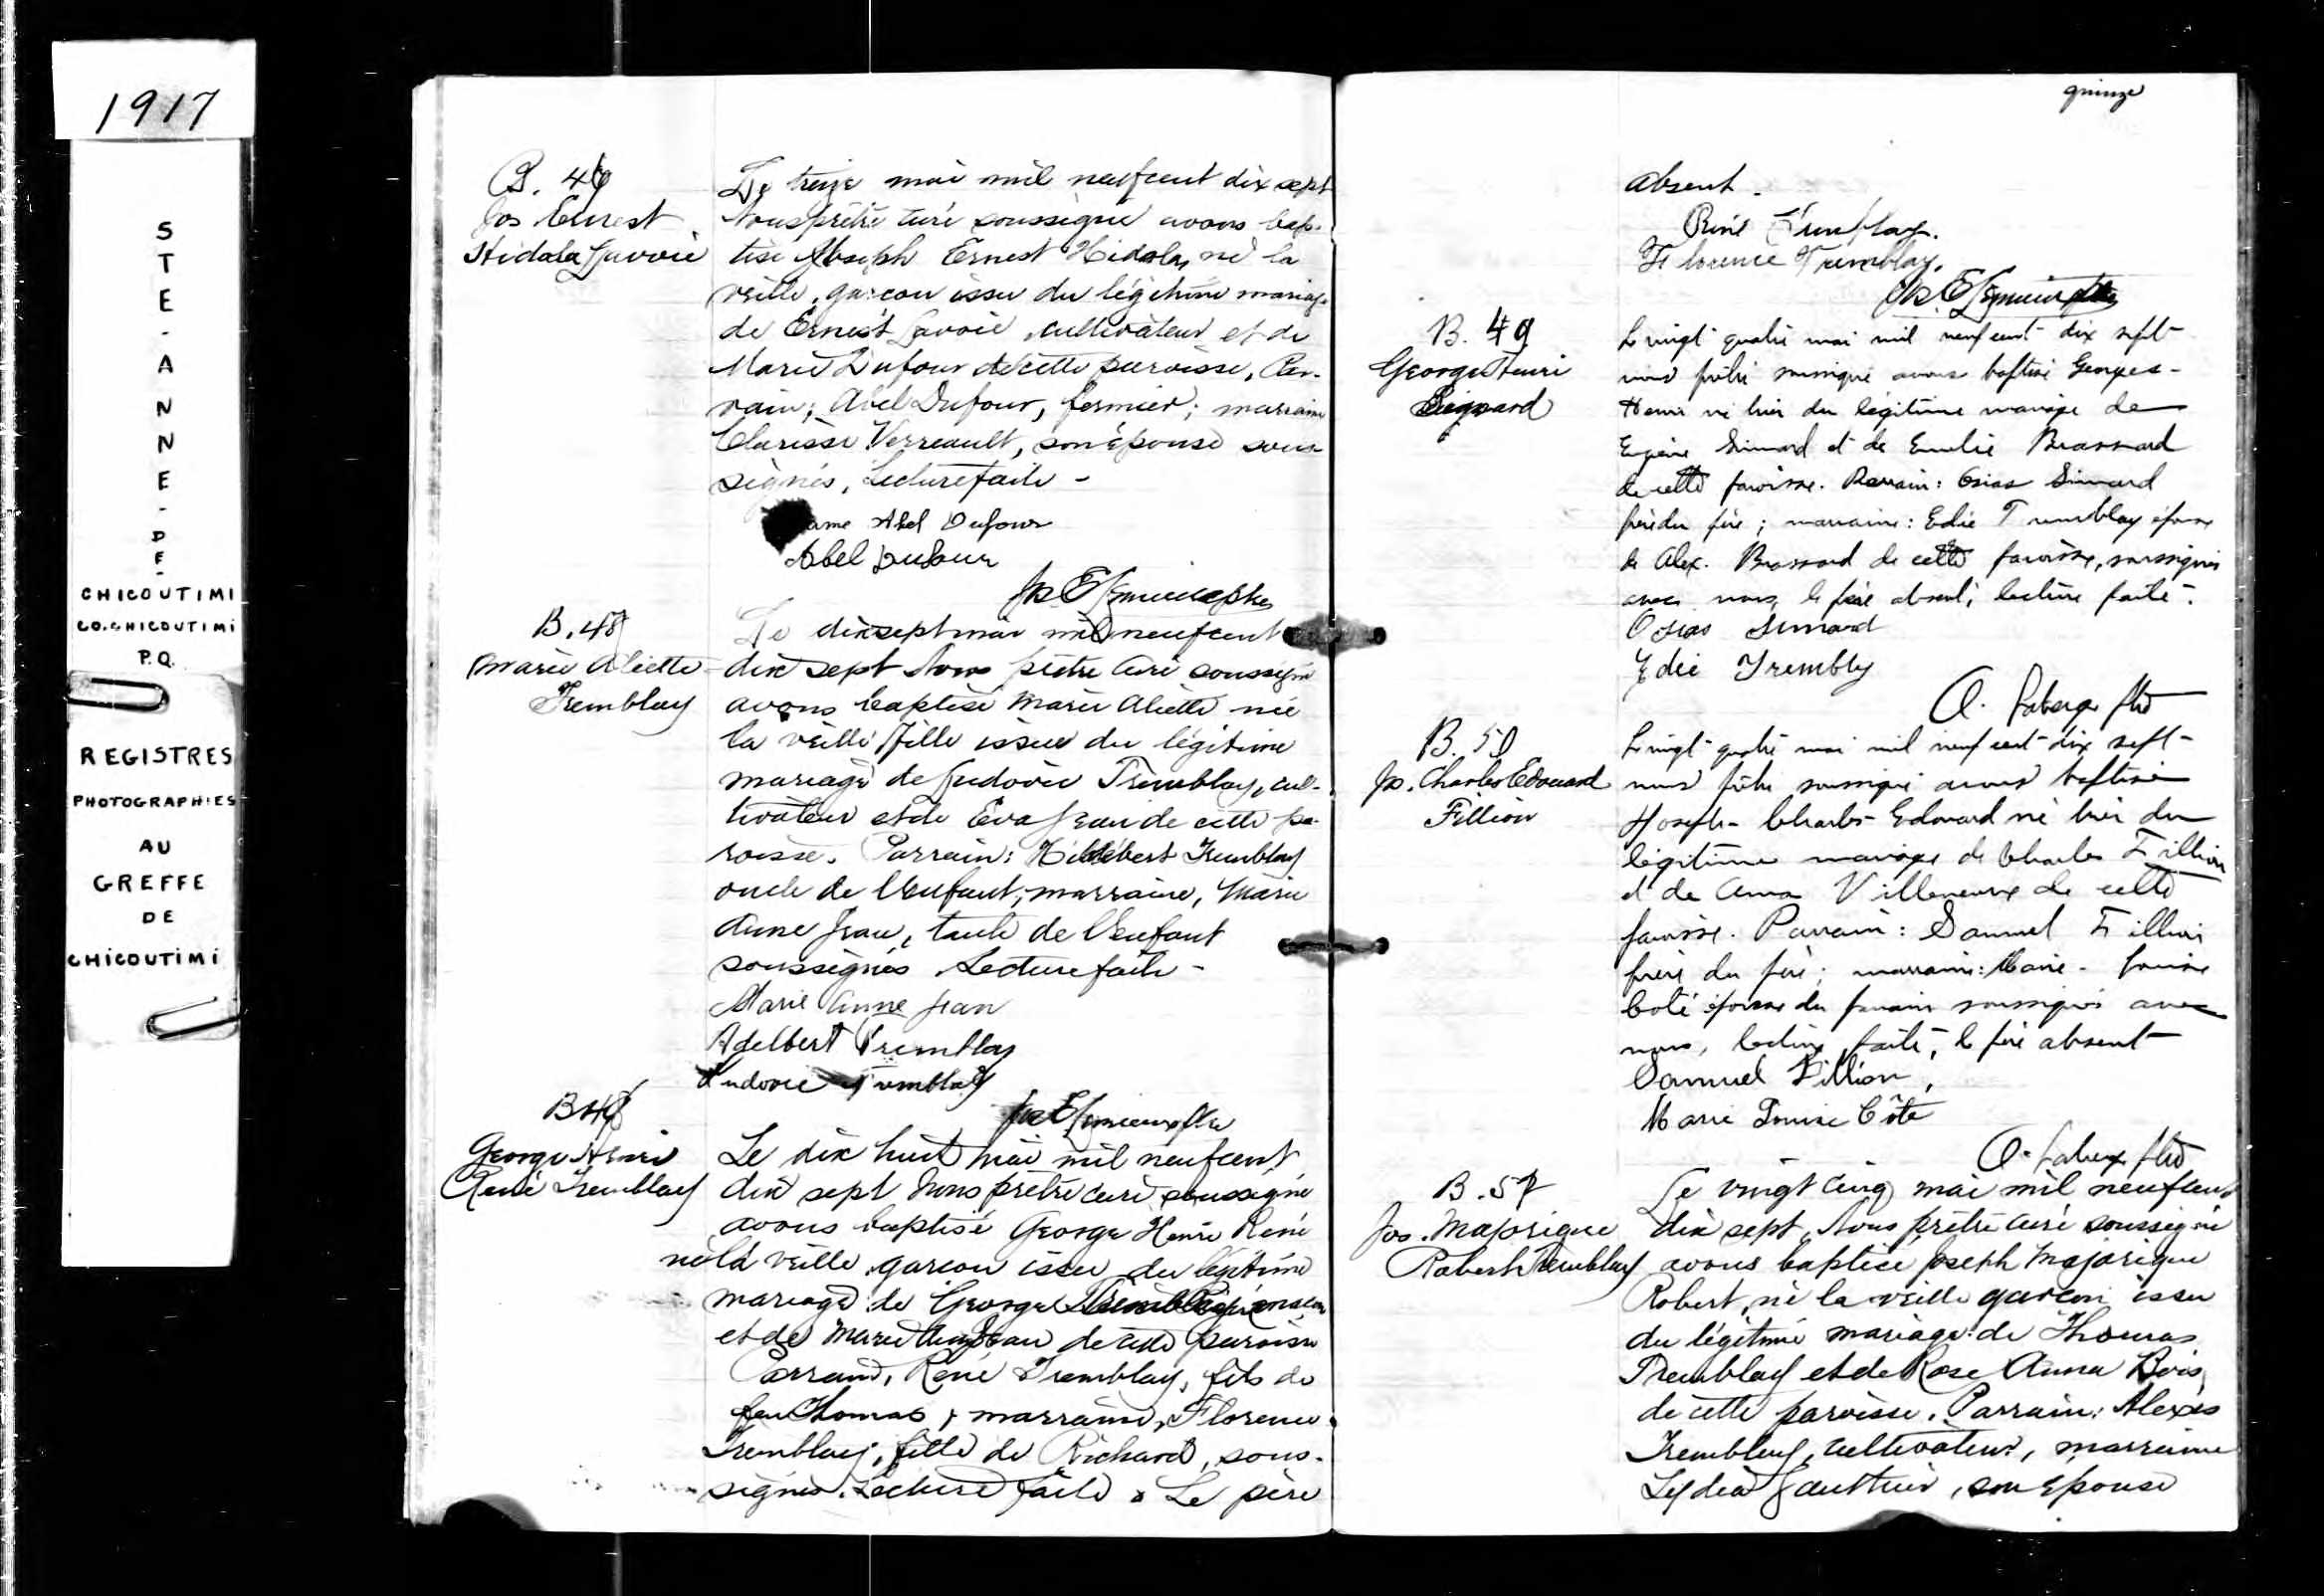 1917
STE-ANNE-DE-
CHICOUTIMI
CO. CHICOUTIMI
P.Q.
REGISTRES
PHOTOGRAPHIES
AU
GREFFE
DE
CHICOUTIMI
B. 46
Jos Ernest
Hidola Lavoie
Le treize mai mil neufcent dix sept
Nous prêtre curé soussigné avons bap-
tisé Joseph Ernest Hidola, né la
veille, garçon issu du légitime mariage
de Ernest Lavoie, cultivateur et de
Marie Dufour de cette paroisse, Par-
rain; Abel Dufour, fermier; marraine
Clarisse Verreault, son épouse sous-
signés, Lecture faite -
Dame Abel Dufour
Abel Dufour
B. 47
Marie Aliette
Tremblay
Le dix sept mai mil neufcent
dix sept Nous prêtre curé soussigné
avons baptisé Marie Aliette née
la veille fille issue du légitime
mariage de Ludovic Tremblay, cul-
tivateur et de Eva Jean de cette pa-
roisse. Parrain: Tremblay
oncle de l'enfant; marraine, Marie
Anne Jean, tante de l'enfant
soussignés Lecture faite -
Marie Anne Jean
Adelbert Tremblay
Ludovic Tremblay
B 48
George Henri
René Tremblay
Le dix huit mai mil neufcent
dix sept Nous prêtre curé soussigné
avons baptisé George Henri René
né la veille garçon issu du légitime
mariage de George Tremblay
et de Marie Jean de cette paroisse
Parrain, René Tremblay, fils de
feu Thomas, marraine, Florence
Tremblay, fille de Richard, sous-
signés. Lecture faite. Le père
quinze
absent.
René Tremblay.
Florence Tremblay.
B. 49
George Henri
Simard
Le vingt quatre mai mil neuf cent dix sept
nous prêtre soussigné avons baptisé Georges-
Henri né hier du légitime mariage de
Eugène Simard et de Emelie Brassard
de cette paroisse. Parrain: Osias Simard
frère du père; marraine: Edie Tremblay épouse
de Alex. Brassard de cette paroisse, soussignés
avec nous, le père absent; lecture faite.
Osias Simard
Edie Trembly
A. Laberge ptre
B. 50
Jos. Charles Edouard
Fillion
Le vingt quatre mai mil neuf cent dix sept
nous prêtre soussigné avons baptisé
Joseph-Charles-Edouard né hier du
légitime mariage de Charles Fillion
et de Anna Villeneuve de cette
paroisse. Parrain: Samuel Fillion
frère du père; marraine: Marie-Louise
Coté épouse du parrain soussignés avec
nous, lecture faite, le père absent
Samuel Fillion,
Marie Louise Côté
A. Laberge ptre
B. 51
Jos. Majorique
Robert Tremblay
Le vingt cinq mai mil neufcent
dix sept, Nous prêtre curé soussigné
avons baptisé Joseph Majorique
Robert, né la veille garçon issu
du légitime mariage de Thomas
Tremblay et de Rose Anna Bois,
de cette paroisse. Parrain: Alexis
Tremblay, cultivateur, marraine
Lydia Gauthier, son épouse